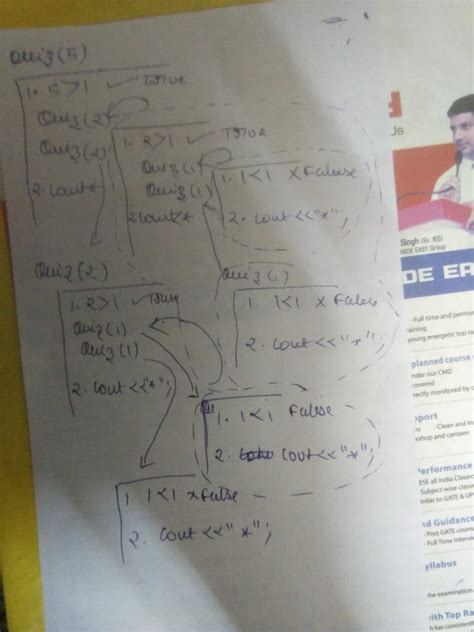 Quiz(5)
1. 5>1 ✓ True
Quiz(2)
Quiz(2)
2. cout*
1. 2>1 ✓ True
Quiz(1)
Quiz(1)
2 cout *
1. 1<1 x False
2. Cout<<"*";
Quiz(2)
1. 2>1 ✓ True
Quiz(1)
Quiz(1)
2. Cout<<"*";
Quiz(1)
1. 1<1 x False
2. Cout<<"*";
1. 1<1 False
2. Cout<<"*";
1. 1<1 x False
2. Cout <<"*";
Singh (Ex. IES)
ANDE EASY Group
DE EA
- Full time and perma
raining
young energetic top ra
planned course
nder our CMD
covered
rectly monitored by d
pport
- Clean and
shop and canteen
Performance
ESE all India Classro
Subject-wise class
similar to GATE & UP
nd Guidance
- Post GATE couns
- Full Time Interview
yllabus
the examination
with Top Ra
has consisten